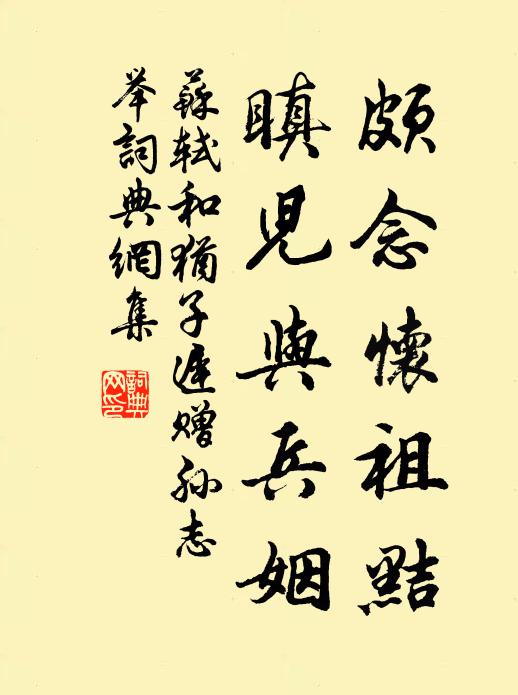 頗念懷祖黠
瞋兒與兵姻
蘇軾和猶子遲贈孙志
举詞典網集
詞典
网印